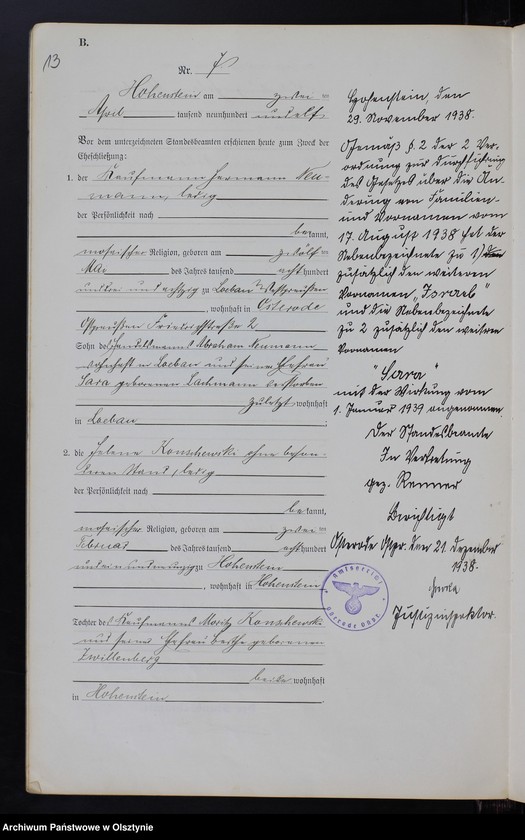 B.
13
Nr. 7
Hohenstein am zwei ten
April tausend neunhundert und elf
Vor dem unterzeichneten Standesbeamten erschienen heute zum Zweck der
Eheschließung:
1. der Kaufmann Hermann Neu-
mann, ledig
der Persönlichkeit nach
be kannt,
mosaischer Religion, geboren am zwölf ten
Mai des Jahres tausend acht hundert
und achtzig zu Loebau Westpreußen
, wohnhaft in Osterode
Ostpreußen
Sohn des Handelsmanns Abraham Neumann
wohnhaft in Loebau und seiner Ehefrau
Sara geborenen Lachmann verstorben
zuletzt wohnhaft
in Loebau .
2. die Helene Konschewski ohne beson-
deren Stand, ledig
der Persönlichkeit nach
be kannt,
mosaischer Religion, geboren am zwei ten
Februar des Jahres tausend acht hundert
zu Hohenstein
, wohnhaft in Hohenstein
Tochter des Kaufmanns Moritz Konschewski
und seiner Ehefrau geborenen
Zwillenberg
beide wohnhaft
in Hohenstein .
Hohenstein, den
29. November 1938.
Gemäß § 2 der 2 Ver-
ordnung zur Durchführung
des Gesetzes über die Än-
derung von Familien-
und Vornamen vom
17. August 1938 hat der
Nebenbezeichnete zu 1)
zusätzlich den weiteren
Vornamen „Israel"
und die Nebenbezeichnete
zu 2 zusätzlich den weitern
Vornamen
"Sara"
mit der Wirkung vom
1. Januar 1939 angenommen
Der Standesbeamte
In Vertretung
gez. Renner
Berichtigt
Osterode Ostpr. den 21. Dezember
1938.
Justizinspektor.
Amtsgericht
Osterode Ostpr.
Archiwum Państwowe w Olsztynie